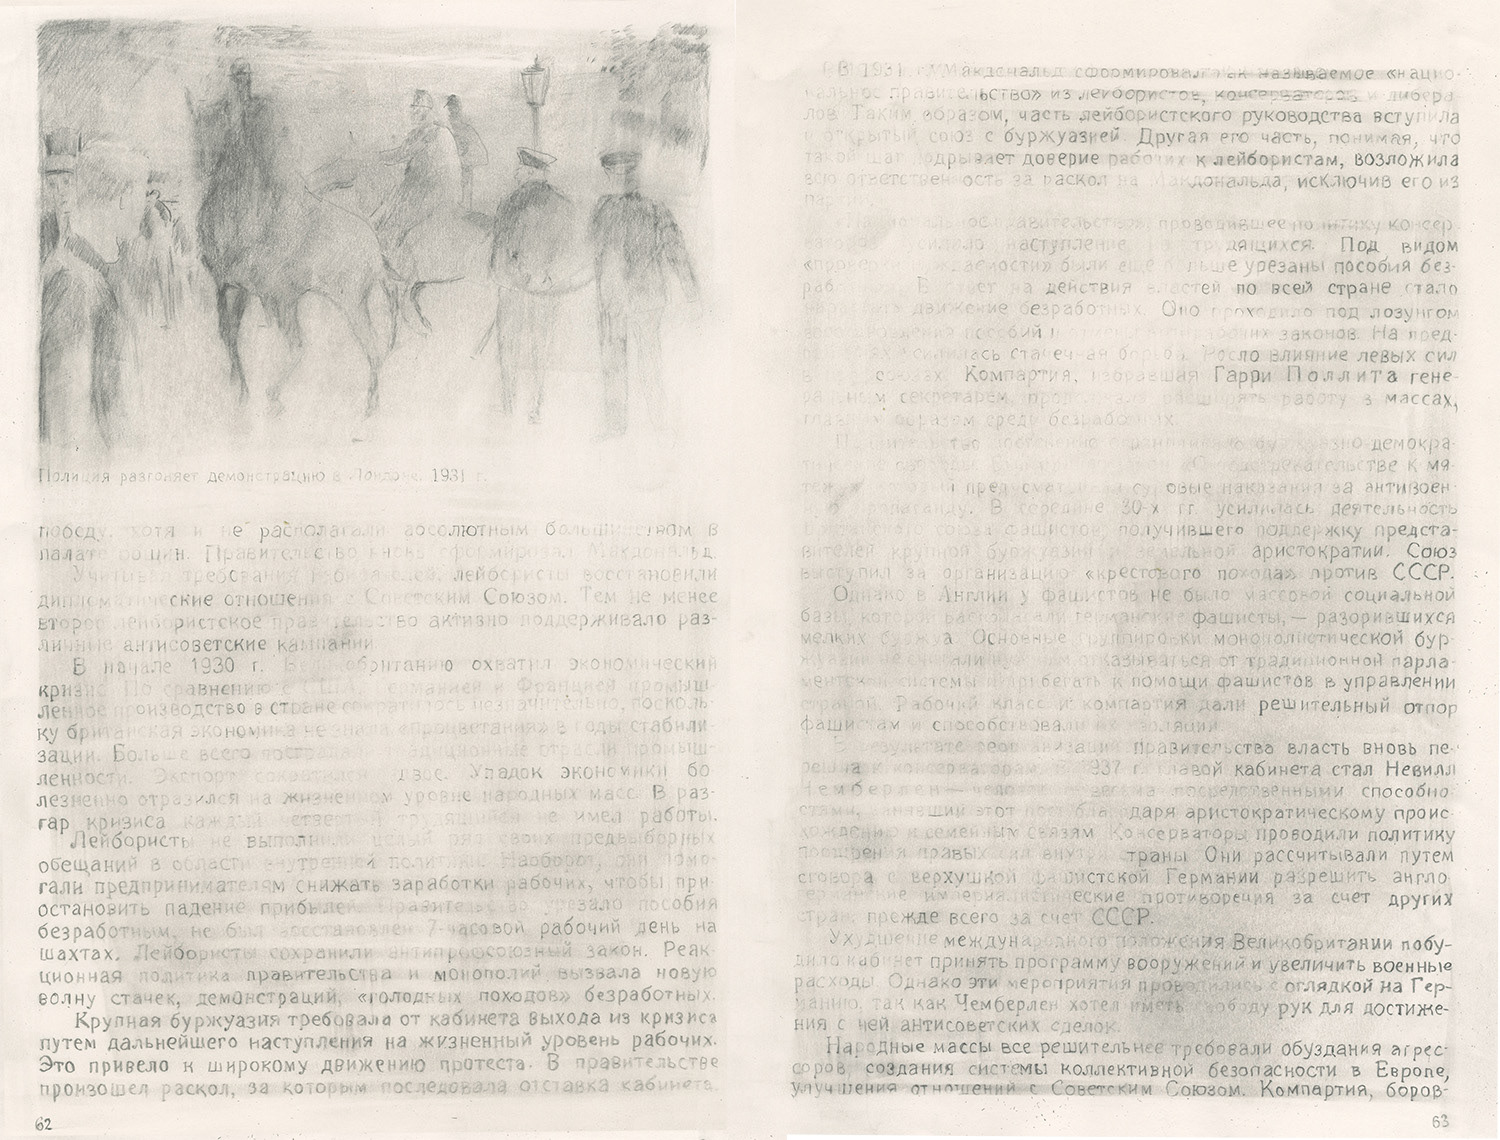 Полиция разгоняет демонстрацию в Лондоне. 1931 г.
победу, хотя и не располагали абсолютным большинством в
палате общин. Правительство вновь сформировал Макдональд.
Учитывая требования избирателей, лейбористы восстановили
дипломатические отношения с Советским Союзом. Тем не менее
второе лейбористское правительство активно поддерживало раз-
личные антисоветские кампании
В начале 1930 г. Великобританию охватил экономический
кризис. По сравнению с США, Германией и Францией промыш-
ленное производство в стране сократилось незначительно, посколь-
ку британская экономика не знала «процветания» в годы стабили-
зации. Больше всего пострадали традиционные отрасли промыш-
ленности. Экспорт сократился вдвое. Упадок экономики бо
лезненно отразился на жизненном уровне народных масс. В раз-
гар кризиса каждый четвертый трудящийся не имел работы.
Лейбористы не выполнили целый ряд своих предвыборных
обещаний в области внутренней политики. Наоборот, они помо-
гали предпринимателям снижать заработки рабочих, чтобы при-
остановить падение прибылей. Правительство урезало пособия
безработным, не был восстановлен 7-часовой рабочий день на
шахтах. Лейбористы сохранили антипрофсоюзный закон. Реак-
ционная политика правительства и монополий вызвала новую
волну стачек, демонстраций, «голодных походов» безработных.
Крупная буржуазия требовала от кабинета выхода из кризиса
путем дальнейшего наступления на жизненный уровень рабочих.
Это привело к широкому движению протеста. В правительстве
произошел раскол, за которым последовала отставка кабинета.
62
В 1931 г. Макдональд сформировал так называемое «нацио-
нальное правительство» из лейбористов, консерваторов и либера-
лов. Таким образом, часть лейбористского руководства вступила
в открытый союз с буржуазией. Другая его часть, понимая, что
такой шаг подрывает доверие рабочих к лейбористам, возложила
всю ответственность за раскол на Макдональда, исключив его из
«Национальное правительство», проводившее политику консер-
ваторов, усилило наступление на трудящихся. Под видом
«проверки нуждаемости» были еще больше урезаны пособия без-
В ответ на действия властей по всей стране стало
движение безработных. Оно проходило под лозунгом
пособий и законов. На пред-
усилилась стачечная борьба. Росло влияние левых сил
в союзах. Компартия, избравшая Гарри Поллита гене-
ральным секретарем, продолжала расширять работу в массах,
главным образом среди безработных.
Правительство постепенно ограничивало буржуазно-демокра-
подстрекательстве к мя-
предусматривал суровые наказания за антивоен-
ную пропаганду. В середине 30-х гг. усилилась деятельность
Британского союза фашистов, получившего поддержку предста-
вителей крупной буржуазии и земельной аристократии. Союз
выступил за организацию «крестового похода» против СССР.
Однако в Англии у фашистов не было массовой социальной
базы, которой располагали германские фашисты, — разорившихся
мелких буржуа. Основные группировки монополистической бур-
жуазии не считали нужным отказываться от традиционной парла-
ментской системы и прибегать к помощи фашистов в управлении
страной. Рабочий класс и компартия дали решительный отпор
фашистам и способствовали их изоляции.
В результате реорганизации правительства власть вновь пе-
решла к консерваторам. В 1937 г. главой кабинета стал Невилл
Чемберлен — человек весьма посредственными способно-
стями, занявший этот пост благодаря аристократическому проис-
хождению и семейным связям. Консерваторы проводили политику
поощрения правых сил внутри страны. Они рассчитывали путем
сговора с верхушкой фашистской Германии разрешить англо-
германские империалистические противоречия за счет других
стран, прежде всего за счет СССР.
Ухудшение международного положения Великобритании побу-
дило кабинет принять программу вооружений и увеличить военные
расходы. Однако эти мероприятия проводились с оглядкой на Гер-
манию, так как Чемберлен хотел иметь свободу рук для достиже-
ния с ней антисоветских сделок.
Народные массы все решительнее требовали обуздания агрес-
соров, создания системы коллективной безопасности в Европе,
улучшения отношений с Советским Союзом. Компартия, боров-
63